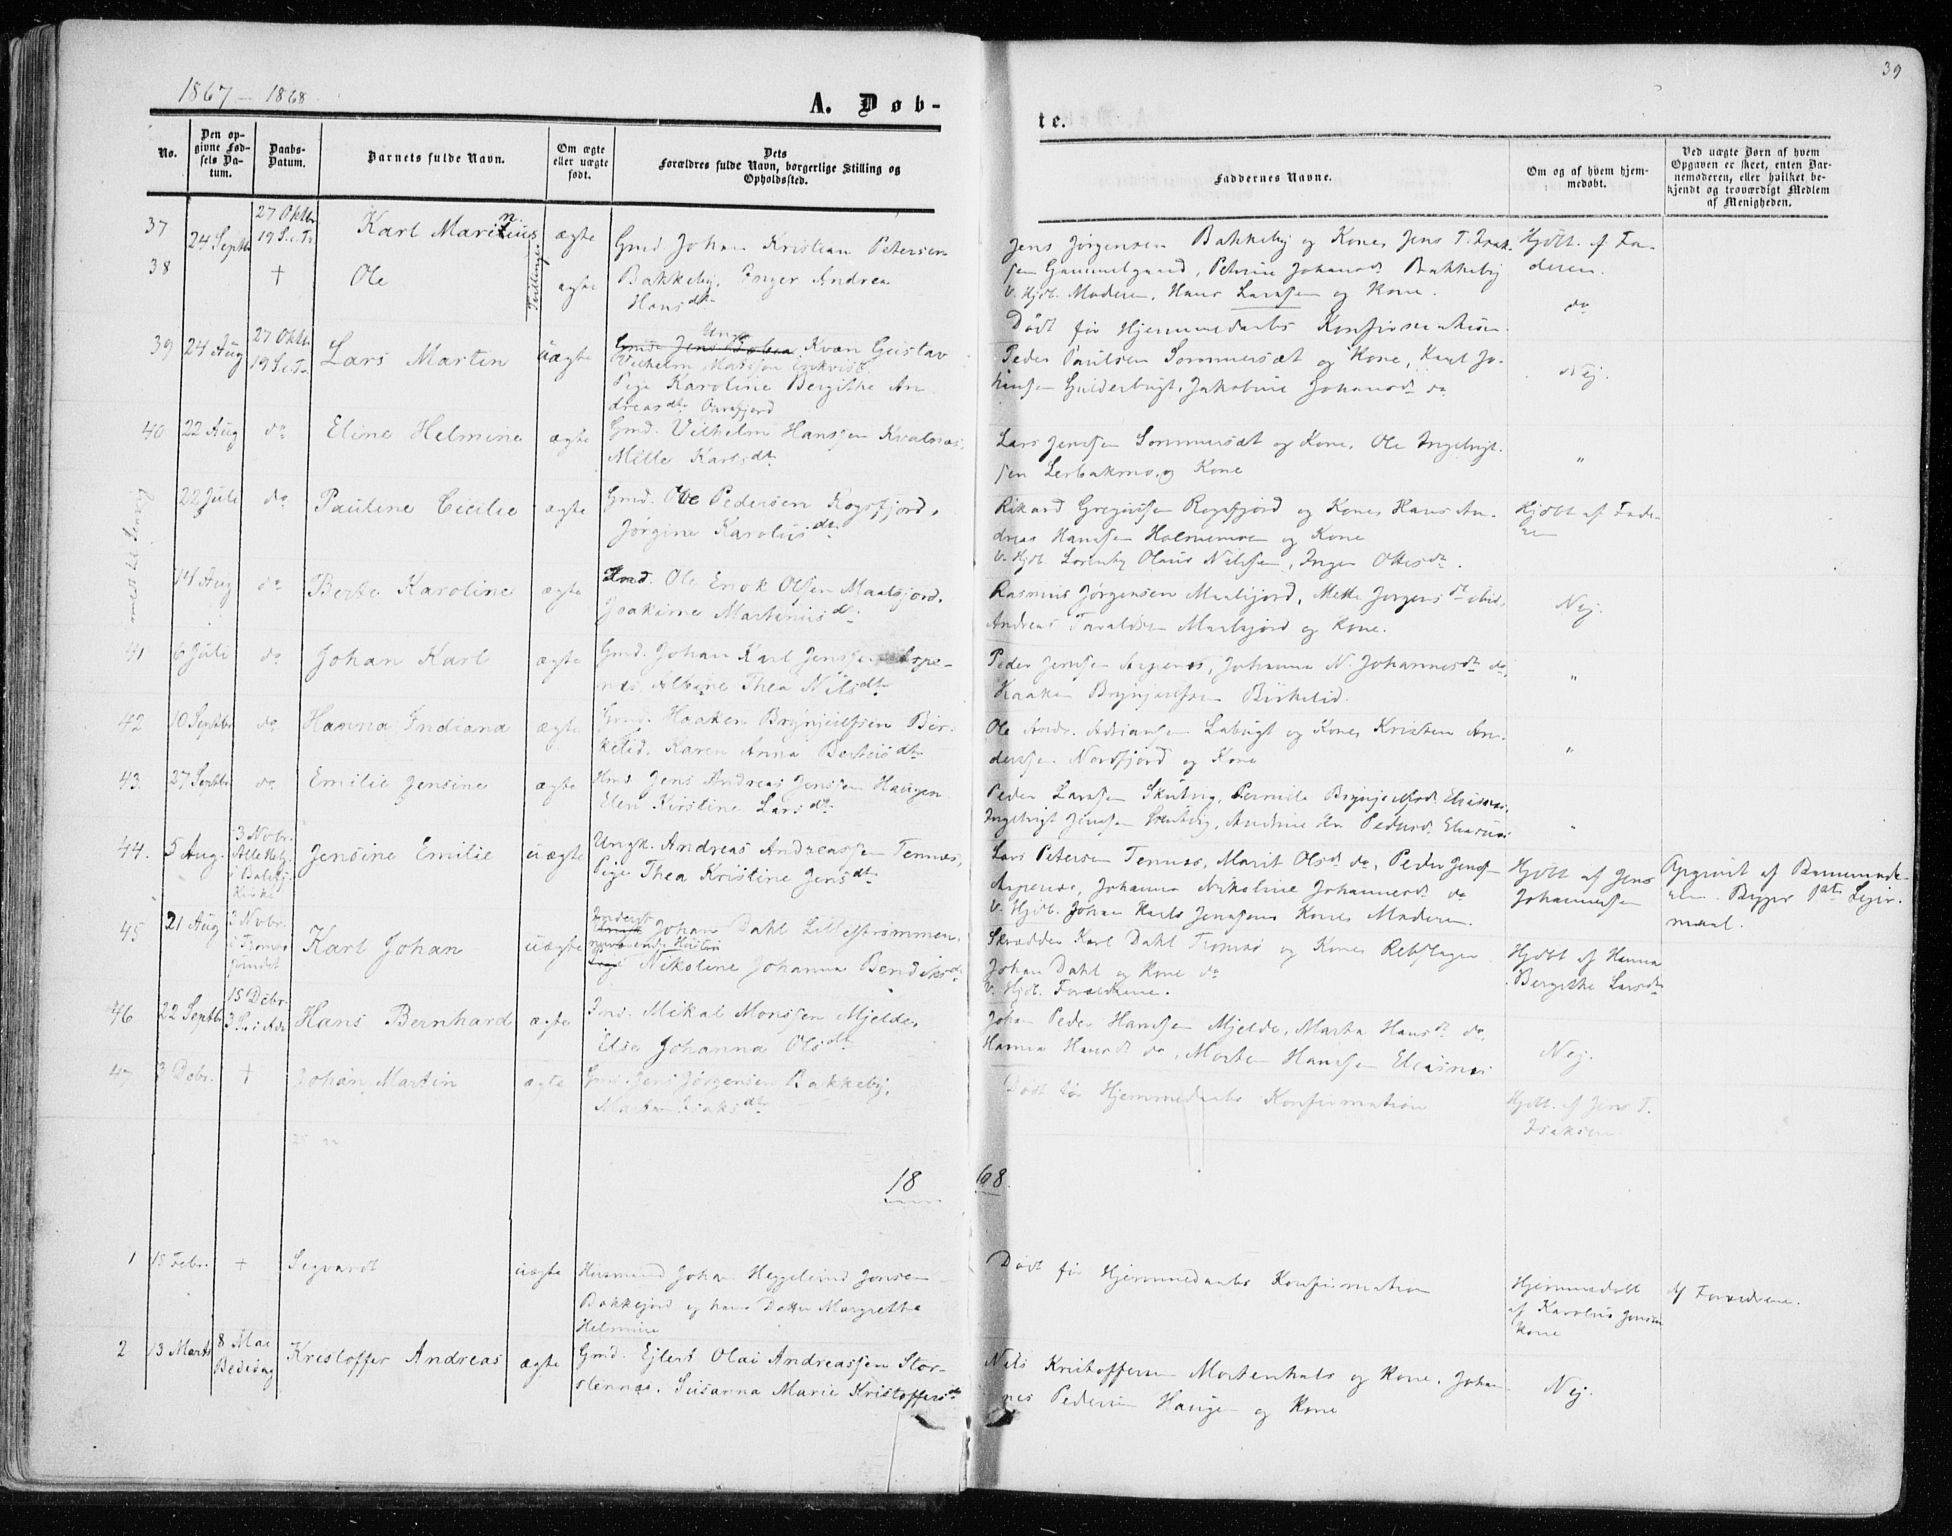 1867 - 1868
39
A. Døb-
te.
No.
Den op-
givne Fød-
sels Da-
tum.
Daabs-
Datum.
Barnets fulde Navn.
Om ægte
eller uægte
født.
Dets
Forældres fulde Navn, borgerlige Stilling og
Opholdssted.
Faddernes Navne.
Om og af hvem hjem-
medøbt.
Ved uægte Børn af hvem
Opgaven er skeet, enten Bar-
nemoderen, eller hvilket be-
kjendt og troværdigt Medlem
af Menigheden.
37
24 Septbr
27 Oktbr
19 S. e. Tr.
Karl Marinius
ægte
Gmd Johan Kristian Petersen
Jens Jørgensen Bakkeby og Kone, Jens T. Isak-
sen Gammelgaard, Petrine Johansdt Bakkeby
V. Hjdt. Moderen, Hans Larssen og Kone.
Hjdbt. af Fa-
deren.
38
+
Ole
Tvillinger
ægte
Bakkeby, Inger Andrea
Hansdtr
Dødt før Hjemmedaabs Konfirmation
do
39
24 Aug
27 Oktbr
19 S. e. Tr.
Lars Martin
uægte
Kvæn Gustav
Pige Karoline Bergithe An-
dreasdtr
Peder Paulsen Sommersæt og Kone, Karl Jo-
hansen Gulderbugt, Jakobine Johansdt do
Nej.
40
22 Aug
do
Eline Helmine
ægte
Gmd. Vilhelm Hanssen Kvalnæs,
Mette Karlsdtr
Lars Jenssen Sommersæt og Kone, Ole Ingebrigt-
sen Lerbakmo, og Kone
"
22 Juli
do
Pauline Cicilie
ægte
Gmd. Ole Pedersen Rogsfjord,
Jørgine Karolusdtr
Rikard Gregusen Rogsfjord og Kone, Hans An-
dreas Hanssen Holmemoe og Kone
V. Hjdt. Olaus Nilssen, Inger Olesdtr.
Hjdbt af Fade-
ren
14 Aug
do
Berte Karoline
ægte
Gmd. Ole Enok Olsen Maalsjord,
Joakime Martinusdtr
Rasmus Jørgensen Maalsjord, Mette Jørgensdt ibid,
Andreas Taraldsen Maalsjord og Kone.
Nej.
41
6 Juli
do
Johan Karl
ægte
Gmd. Johan Karl Jenssen Aspe-
næs, Albine Thea Nilsdtr
Peder Jenssen Aspenes, Johanna N. Johannesdt do,
Haaken Brynjulfsen Birkelid.
"
42
10 Septbr
do
Hanna Indiana
ægte
Gmd. Haaken Brynjulfsen Bir-
kelid, Karen Anna Bertheusdtr
Ole Andr. Adriansen Labugt og Kone, Kristen An-
derssen Nordfjord og Kone
"
43.
27 Septbr
do
Emilie Jensine
ægte
Hmd Jens Andreas Jenssen Haugen
Elen Kirstine Larsdtr
Peder Larssen Skutvig, Pernille Brynjulfsdt. Elvesnæs,
Ingebrigt Jenssen Skutvig,
"
44.
5 Aug.
3 Novbr.
Alle Helg.
i Balsfj.
Kirke
Jensine Emilie
uægte
Ungk. Andreas Andreassen Tennæs,
Pige Thea Kristine Jensdtr
Lars Petersen Tennæs, Marit Olsdt do, Peder Jenss-
Aspenæs, Johanna Nikoline Johannesdt do
V. Hjdb. Johan Karls Jenssens Kone, Moderen.
Hjdbt af Jens
Johannessen
Opgivet af Barnemode-
ren. Begges 1ste Leier-
maal.
45
21 Aug
3 Novbr.
i Tromsø
sundet
Karl Johan
uægte
Johan Dahl Lillestrømmen,
Nikoline Johanna Bendiksdtr
Skrædder Karl Dahl Tromsø og Kone, Rebslager
Johan Dahl og Kone do
V. Hjdt. Forældrene.
Hjdbt af Hanna
Bergithe Larsdtr
46
22 Septbr
15 Decbr.
3 S. i Adv
Hans Bernhard
ægte
Ind. Mikal Monssen Mjelde,
Else Johanna Olsdtr
Johan Peder Hanssen Mjelde, Marta Hansdt do,
Hanna Hansdt do, Morten Hanssen Elvesnæs
Nej.
47
3 Debr.
+
Johan Martin
ægte
Gmd. Jens Jørgensen Bakkeby,
Marta Isaksdtr
Dødt før Hjemmedaabs Konfirmation
Hjdbt. af Jens T.
Isaksen
18 68.
1
15 Febr.
+
Segvardt
uægte
Husmand Johan Heggelund Jonsen
Bakkejord og hans Datter Margrethe
Helmine
Dødt før Hjemmedaabs Konfirmation
Hjemmedøbt
af Karolus Jensen
Kone
Af Forældrene.
2
13 Marts
8 Mai
Bededag
Kristoffer Andreas
ægte
Gmd. Ejlert Olai Andreassen Stor-
stennæs, Susanna Marie Kristoffersdtr
Nils Kristoffersen Mortenhals og Kone, Johan-
nes Pedersen Haugen og Kone
Nej.